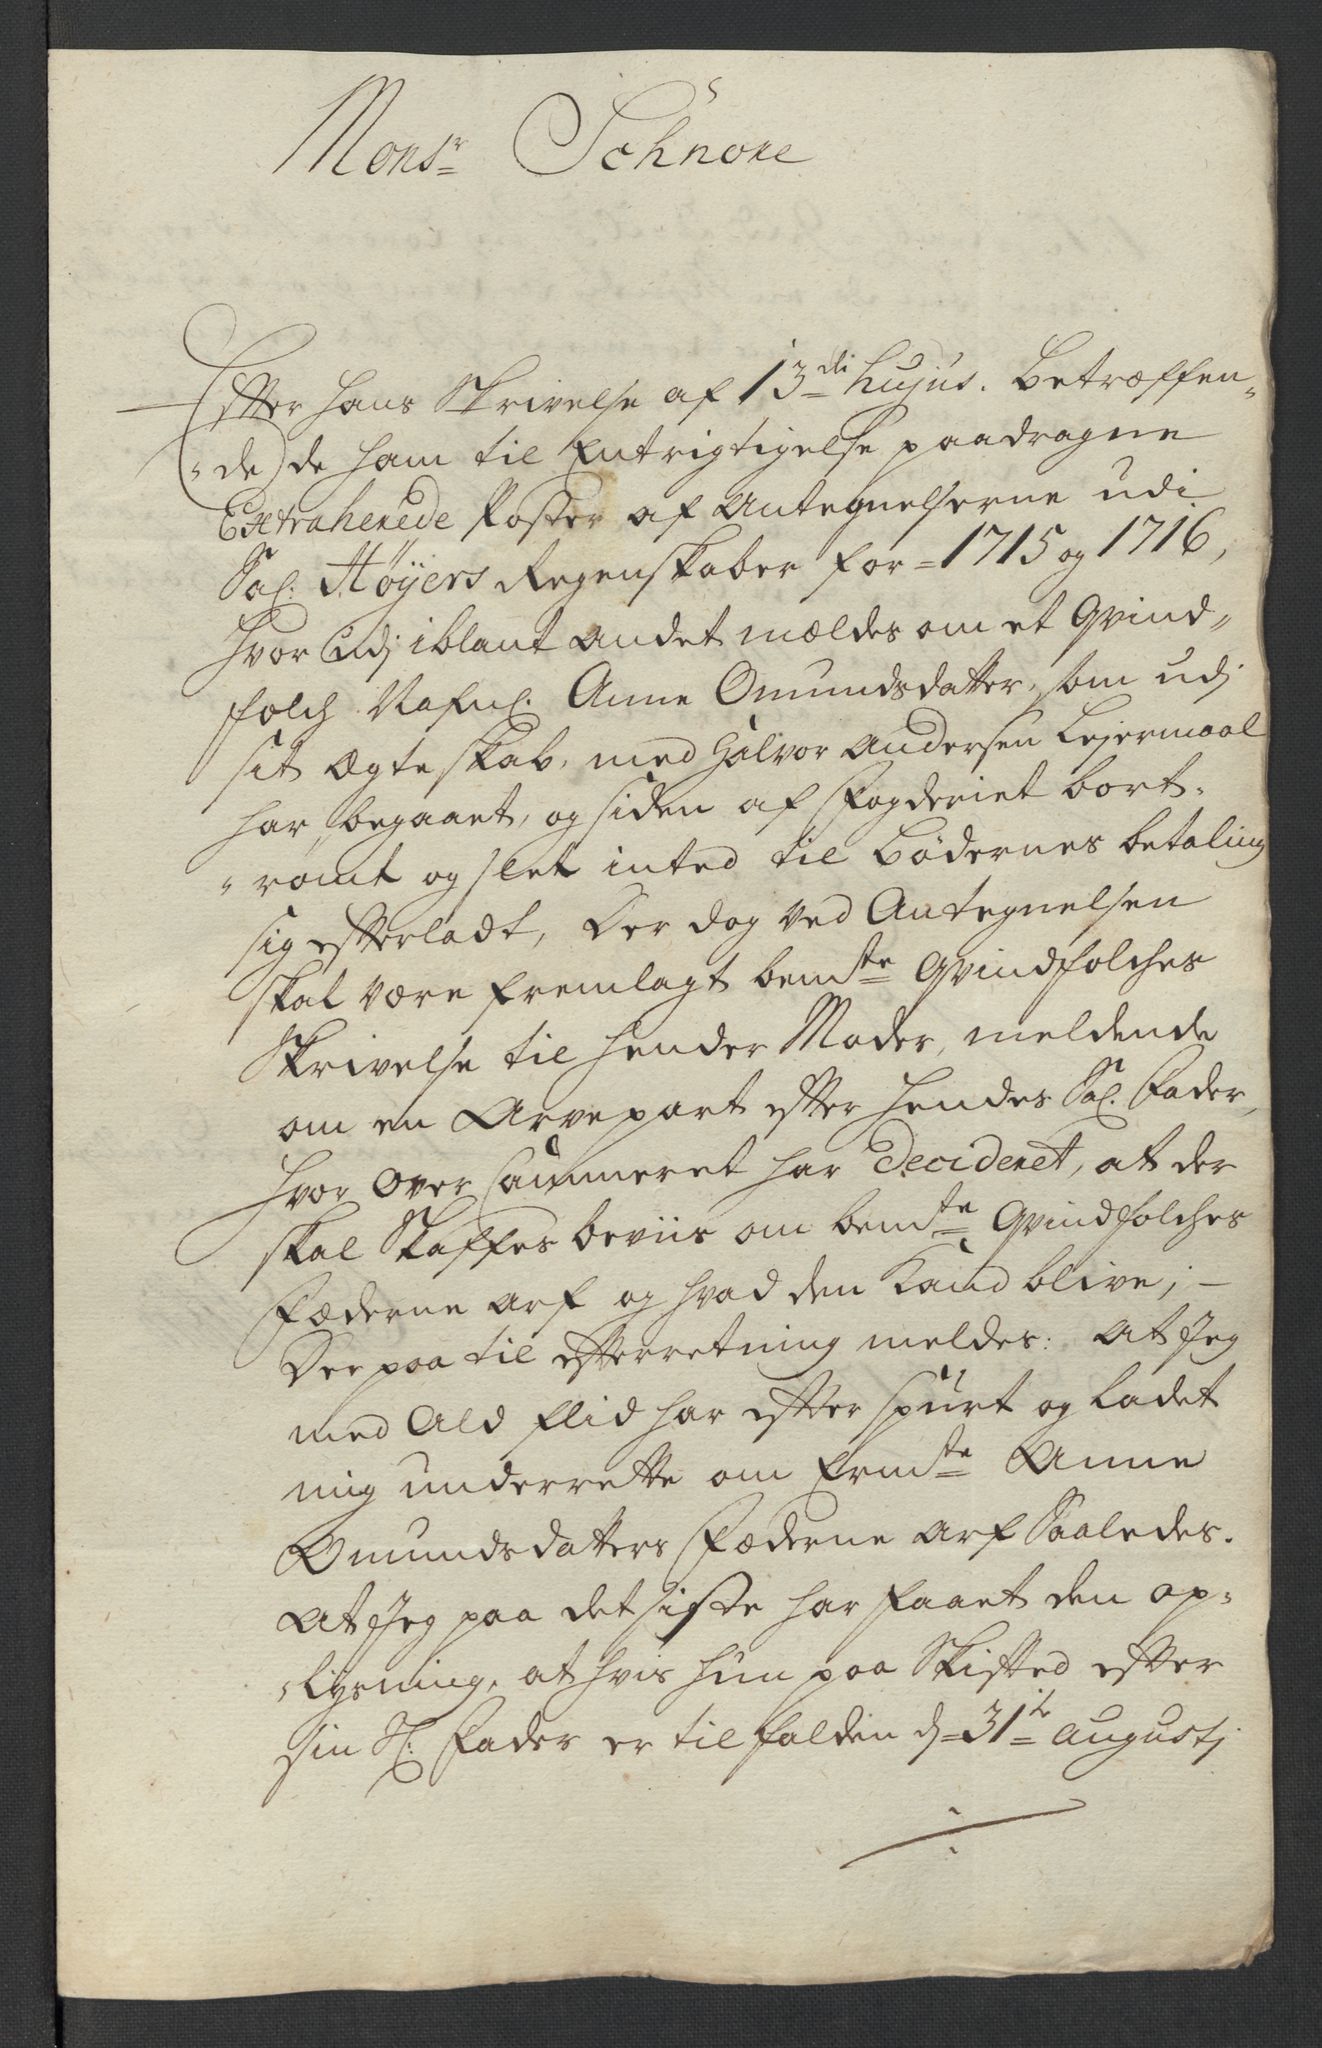 Monsr Schnore
Efter hans Skrivelse af 13di hujus. Betræffen-
-de de ham til Entrigtigelse paadragne
Extraherede Poster af Antegnelserne udi
Sal: Høyers Regenskaber for 1715 og 1716,
hvor udj iblant andet mældes om et Qvind-
folch Nafnl. Anne Omundsdatter, som udj
sit Ægteskab, med Halvor Andersen Lejermaal
har begaaet, og siden af Fogderiet bort-
-rømt og slet inted til Bødernes betaling
sig efterladt, Der dog ved Antegnelsen
skal være fremlagt bemte Qvindfolches
Skrivelse til hender Moder, meldende
om en Arvepart efter hendes Sal. Fader,
hvor over Cammeret har Decideret, at der
skal Skaffes beviis om bemte Qvindfolches
Fæderne arf og hvad den Kand blive; -
Der paa til efterretning meldes: At Jeg
med Ald flid har efter spurt og ladet
mig underrette om Ermte Anne
Omundsdatters Fæderne arf Saaledes.
At Jeg paa det siste har faaet den op-
-lysning, at hvis hun paa Skifted efter
sin Sl: Fader er tilfalden d. 31te Augustj